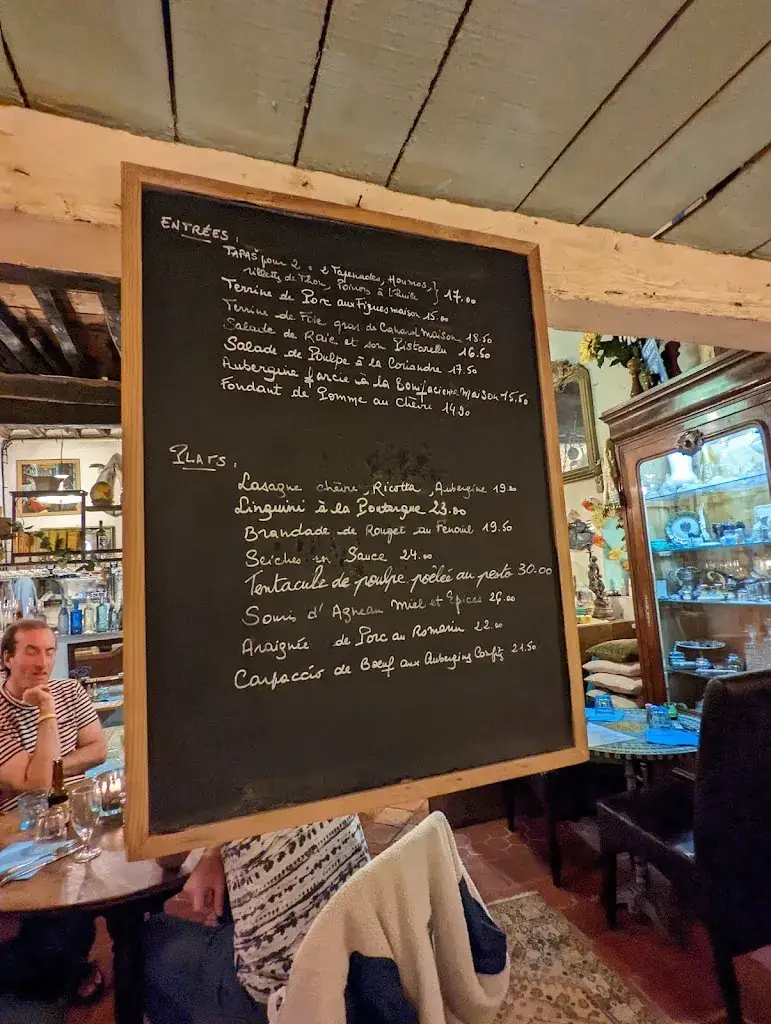 ENTRÉES :
TAPAS pour 2 = 2 Tapenades, Houmos,
rillettes de Thon, Poivrons à l'huile } 17.00
Terrine de Porc aux Figues maison 15.00
Terrine de Foie gras de Canard maison 18.50
Salade de Raie et son Pistarellu 16.50
Salade de Poulpe à la Coriandre 17.50
Aubergine farcie à la Bonifacienne maison 15.50
Fondant de Pomme au chèvre 14.90
PLATS :
Lasagne chèvre, Ricotta, Aubergine 19.00
Linguini à la Poutargue 23.00
Brandade de Rouget au Fenouil 19.50
Seiches en Sauce 24.00
Tentacule de poulpe poêlée au pesto 30.00
Souris d'Agneau Miel et Epices 26.00
Araignée de Porc au Romarin 22.00
Carpaccio de Bœuf aux Aubergines Confites 21.50